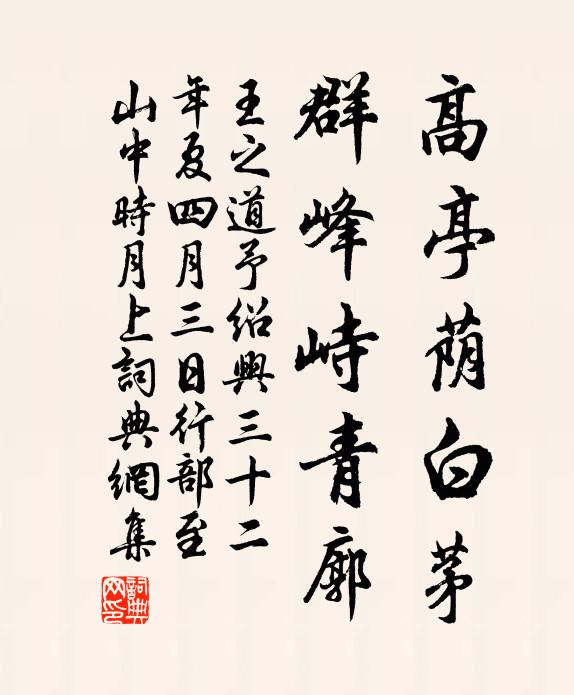 高亭蔭白茅
群峰峙青廓
王之道予紹興三十二
年夏四月三日行部至
山中時月上詞典網集
詞典網印